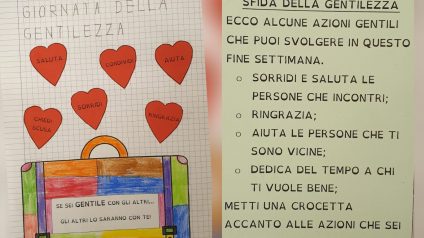 GIORNATA DELLA
GENTILEZZA
SALUTA
CONDIVIDI
AIUTA
CHIEDI
SCUSA
SORRIDI
RINGRAZIA
SE SEI GENTILE CON GLI ALTRI...
GLI ALTRI LO SARANNO CON TE!
SFIDA DELLA GENTILEZZA
ECCO ALCUNE AZIONI GENTILI
CHE PUOI SVOLGERE IN QUESTO
FINE SETTIMANA.
o SORRIDI E SALUTA LE
PERSONE CHE INCONTRI;
o RINGRAZIA;
o AIUTA LE PERSONE CHE TI
SONO VICINE;
o DEDICA DEL TEMPO A CHI
TI VUOLE BENE;
METTI UNA CROCETTA
ACCANTO ALLE AZIONI CHE SEI